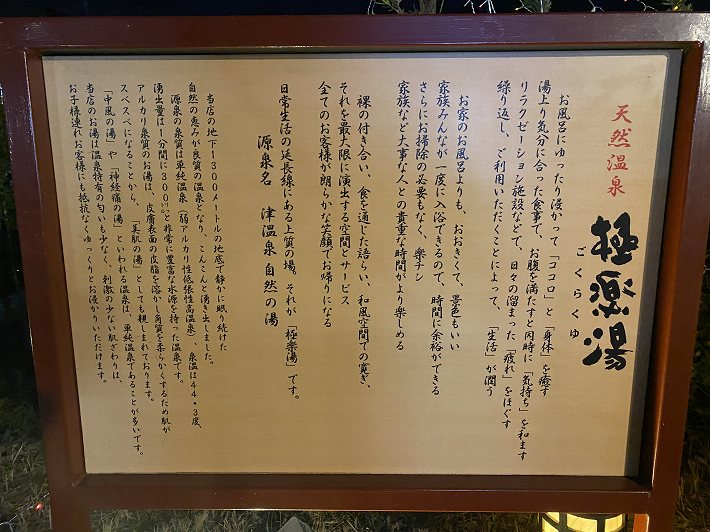 天然温泉
極楽湯
ごくらくゆ
お風呂にゆったり浸かって「ココロ」と「身体」を癒す
湯上り気分に合った食事で、お腹を満たすと同時に「気持ち」を和ます
リラクゼーション施設などで、日々の溜まった「疲れ」をほぐす
繰り返し、ご利用いただくことによって、「生活」が潤う
お家のお風呂よりも、おおきくて、景色もいい
家族みんなが一度に入浴できるので、時間に余裕ができる
さらにお掃除の必要もなく、楽チン
家族など大事な人との貴重な時間がより楽しめる
裸の付き合い、食を通じた語らい、和風空間での寛ぎ、
それを最大限に演出する空間とサービス
全てのお客様が朗らかな笑顔でお帰りになる
日常生活の延長線にある上質の場。それが「極楽湯」です。
源泉名 津温泉 自然の湯
当店の地下1300メートルの地底で静かに眠り続けた
自然の恵みが良質の温泉となり、こんこんと湧き出しました。
源泉の泉質は単純温泉(弱アルカリ性低張性高温泉)、泉温は44・3度、
湧出量は1分間に300ℓと非常に豊富な水源を持った温泉です。
アルカリ泉質のお湯は、皮膚表面の皮脂を溶かし角質を柔らかくするため肌が
スベスベになることから、「美肌の湯」としても親しまれております。
「中風の湯」や「神経痛の湯」といわれる温泉は、単純温泉であることが多いです。
当店のお湯は温泉特有の匂いも少なく、刺激の少ない肌ざわりは、
お子様連れお客様にも抵抗なくゆっくりとお浸かりいただけます。